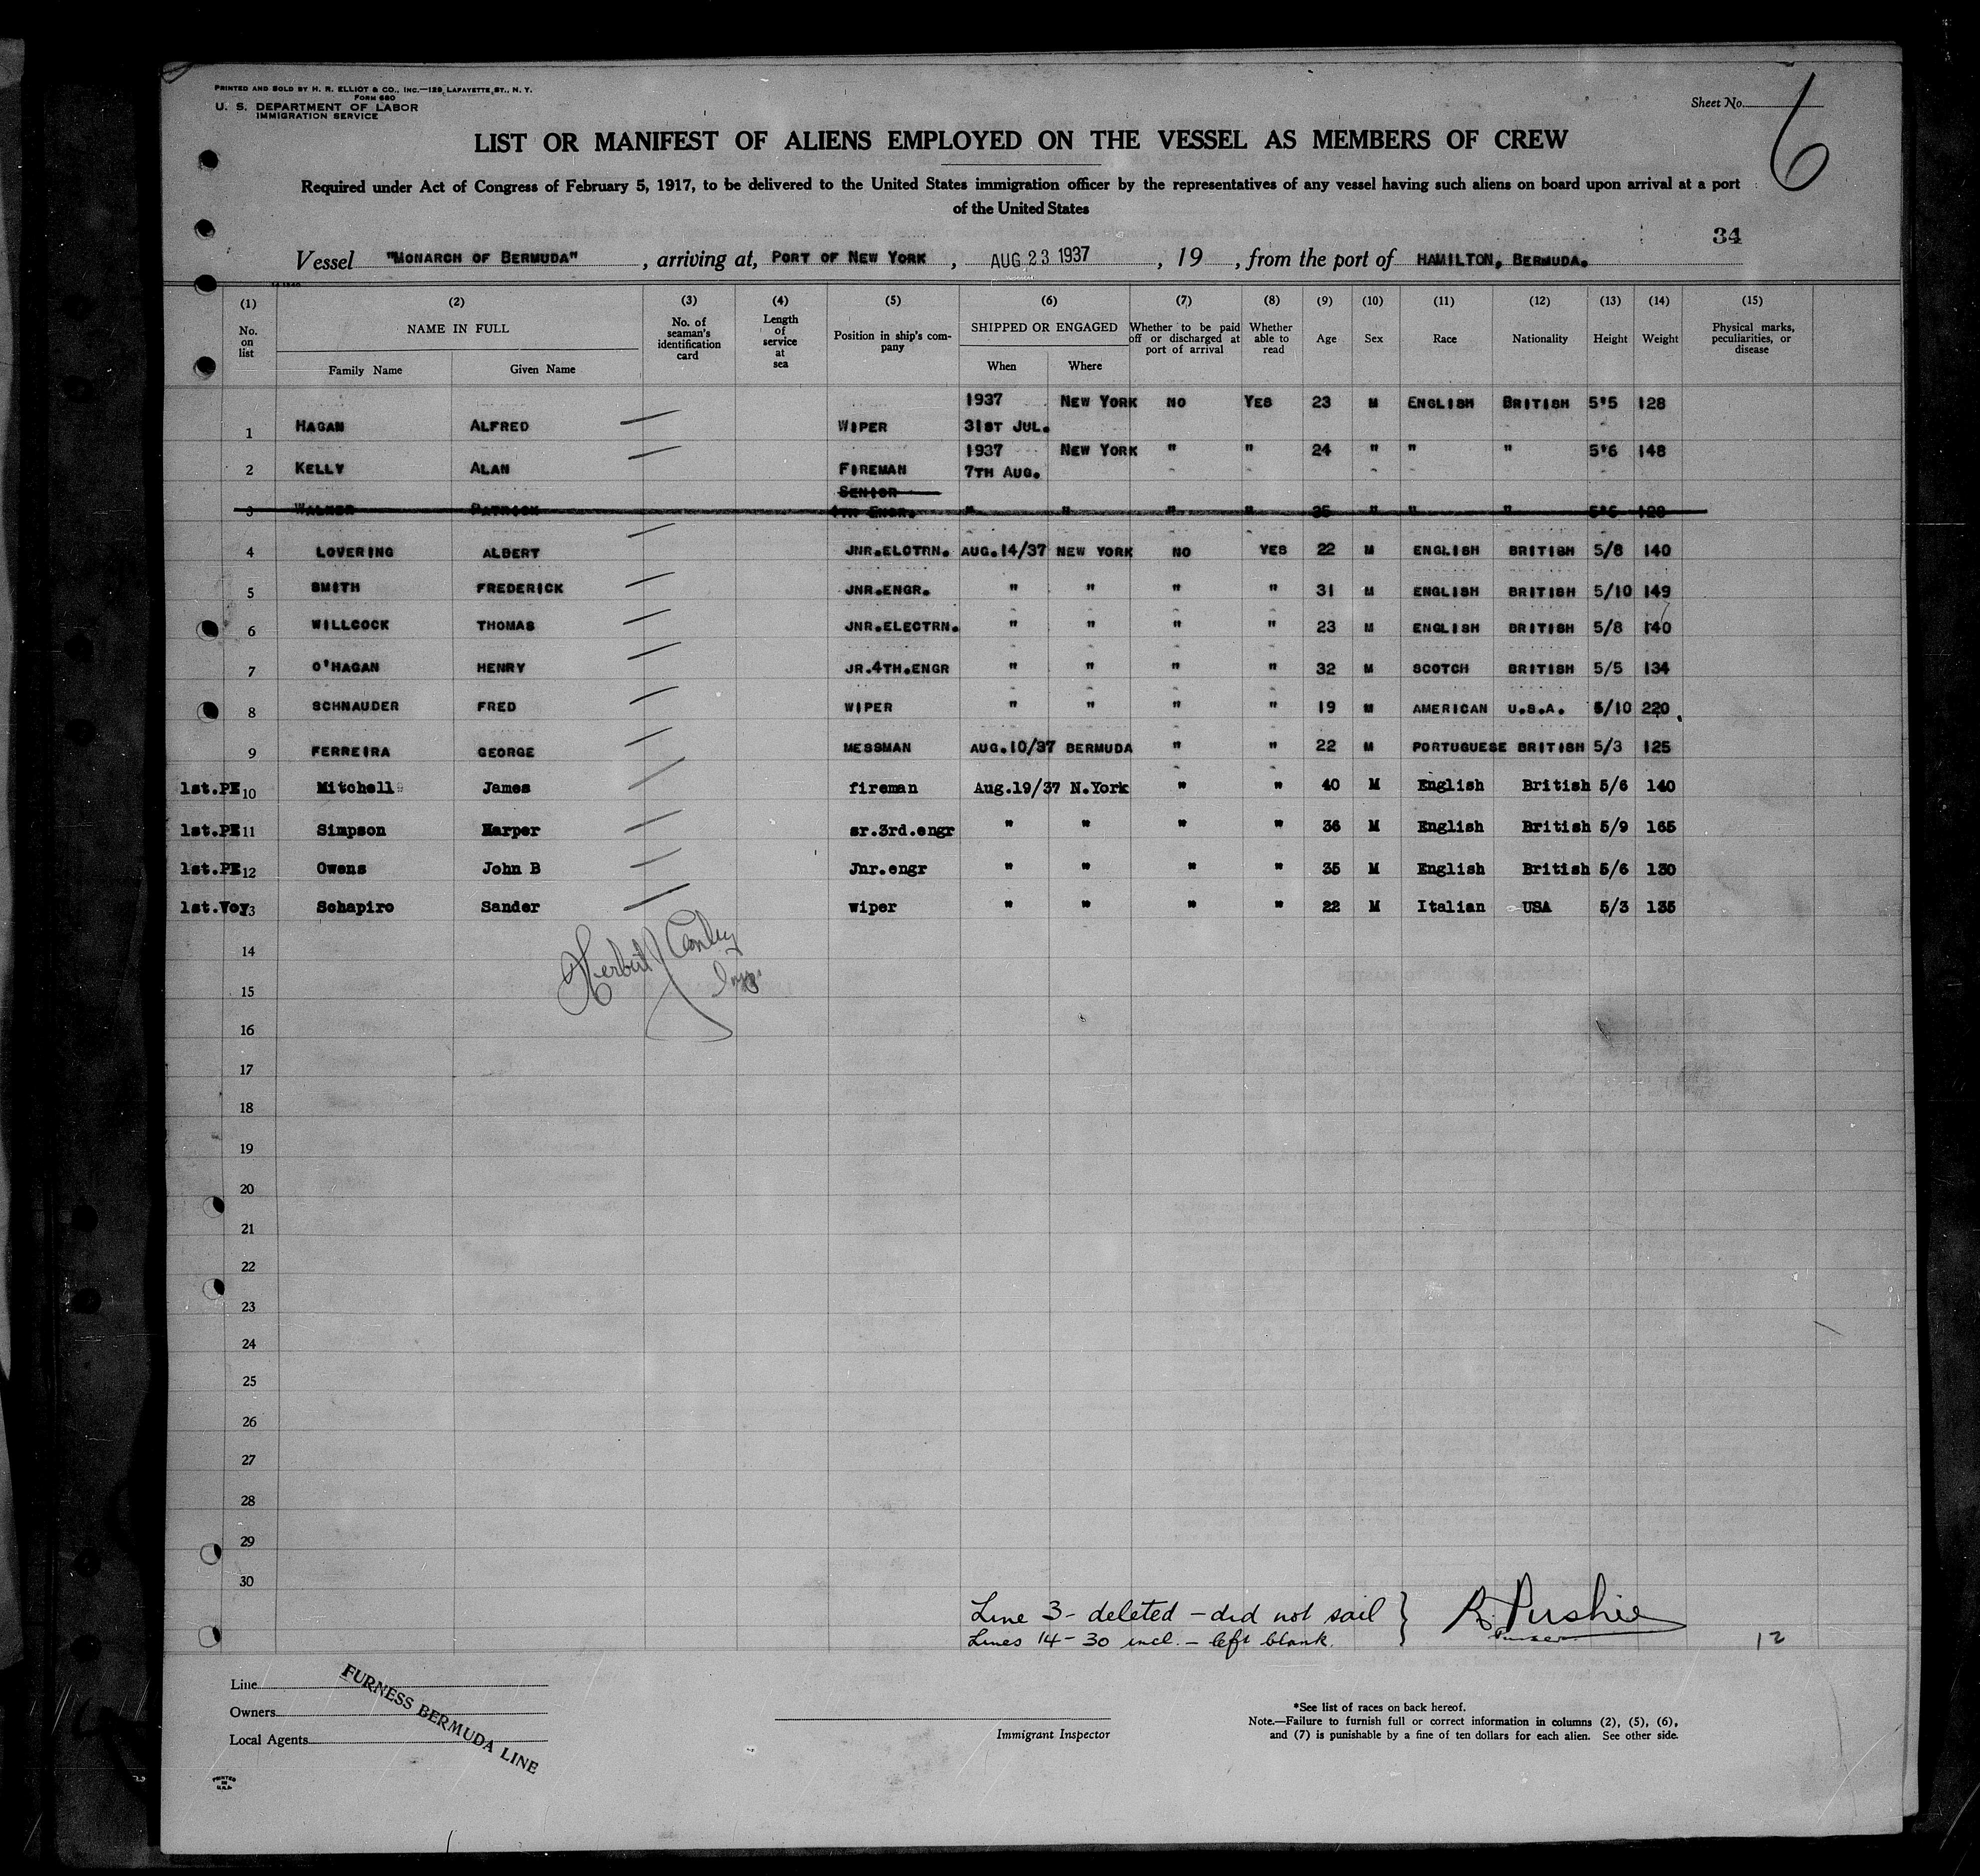 PRINTED AND SOLD BY H. R. ELLIOT & CO., INC.—129 LAFAYETTE ST., N. Y.
FORM 680
U. S. DEPARTMENT OF LABOR
IMMIGRATION SERVICE
Sheet No. 6
LIST OR MANIFEST OF ALIENS EMPLOYED ON THE VESSEL AS MEMBERS OF CREW
Required under Act of Congress of February 5, 1917, to be delivered to the United States immigration officer by the representatives of any vessel having such aliens on board upon arrival at a port
of the United States
34
Vessel "MONARCH OF BERMUDA", arriving at, PORT OF NEW YORK, AUG 23 1937, 19 , from the port of HAMILTON, BERMUDA.
(1) (2) (3) (4) (5) (6) (7) (8) (9) (10) (11) (12) (13) (14) (15)
No. on list NAME IN FULL No. of seaman's identification card Length of service at sea Position in ship's company SHIPPED OR ENGAGED Whether to be paid off or discharged at port of arrival Whether able to read Age Sex Race Nationality Height Weight Physical marks, peculiarities, or disease
Family Name Given Name When Where
1937 NEW YORK NO YES 23 M ENGLISH BRITISH 5'5 128
1 HAGAN ALFRED WIPER 31ST JUL.
1937 NEW YORK " " 24 " " " 5'6 148
2 KELLY ALAN FIREMAN 7TH AUG.
SENIOR
3 WALKER PATRICK 4TH ENGR. " " " " 35 " " " 5'6
4 LOVERING ALBERT JNR.ELCTRN. AUG.14/37 NEW YORK NO YES 22 M ENGLISH BRITISH 5/8 140
5 SMITH FREDERICK JNR.ENGR. " " " " 31 M ENGLISH BRITISH 5/10 149
6 WILLCOCK THOMAS JNR.ELECTRN. " " " " 23 M ENGLISH BRITISH 5/8 140
7 O'HAGAN HENRY JR.4TH.ENGR " " " " 32 M SCOTCH BRITISH 5/5 134
8 SCHNAUDER FRED WIPER " " " " 19 M AMERICAN U.S.A. 5/10 220
9 FERREIRA GEORGE MESSMAN AUG.10/37 BERMUDA " " 22 M PORTUGUESE BRITISH 5/3 125
1st.PE 10 Mitchell James fireman Aug.19/37 N.York " " 40 M English British 5/6 140
1st.PE 11 Simpson Harper sr.3rd.engr " " " " 36 M English British 5/9 165
1st.PE 12 Owens John B Jnr.engr " " " " 35 M English British 5/6 130
1st.Voy 13 Schapiro Sander wiper " " " " 22 M Italian USA 5/3 135
Herbert J Conley
Insp
14
15
16
17
18
19
20
21
22
23
24
25
26
27
28
29
30
Line 3 - deleted - did not sail } R. Pushie
Lines 14 - 30 incl. - left blank. Purser
12
Line
Owners
Local Agents
FURNESS BERMUDA LINE
Immigrant Inspector
*See list of races on back hereof.
Note.—Failure to furnish full or correct information in columns (2), (5), (6),
and (7) is punishable by a fine of ten dollars for each alien. See other side.
PRINTED
IN
U.S.A.